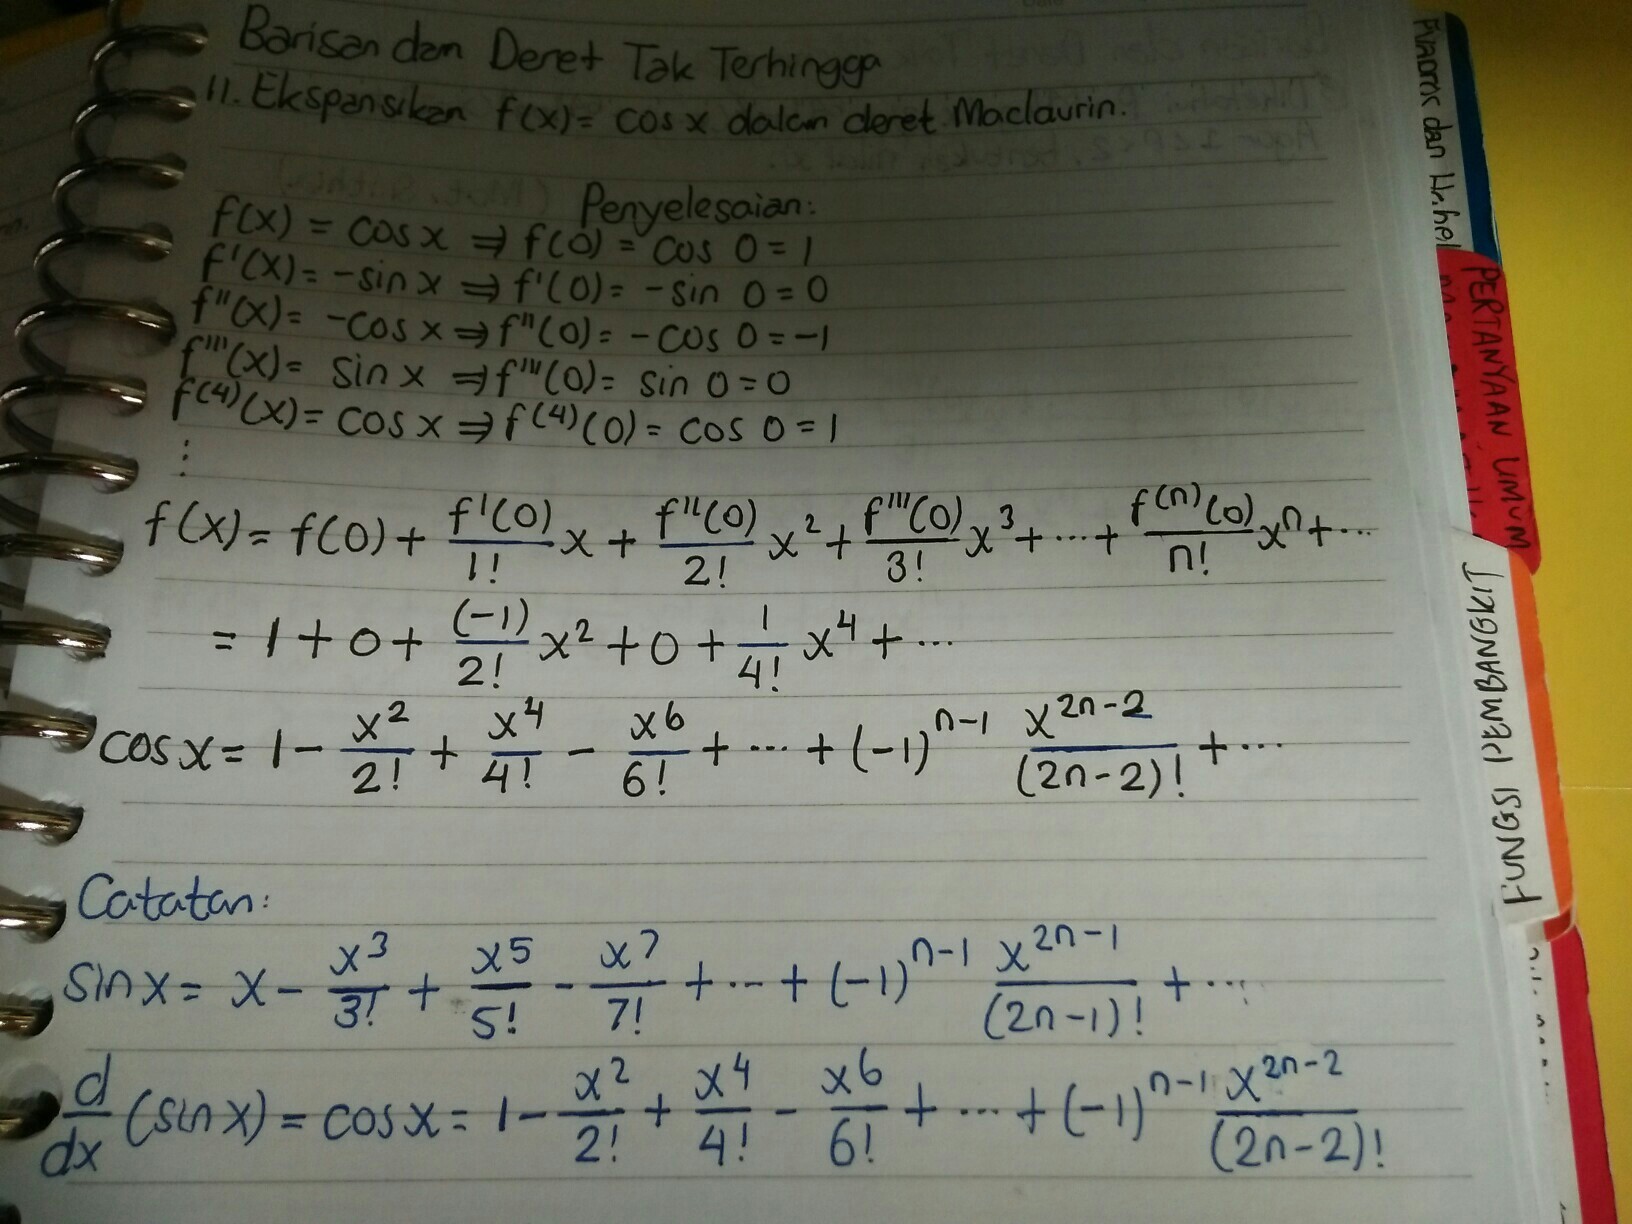 Barisan dan Deret Tak Terhingga
11. Ekspansikan f(x) = cos x dalam deret Maclaurin.
Penyelesaian:
f(x) = cos x ⇒ f(0) = cos 0 = 1
f'(x) = -sin x ⇒ f'(0) = -sin 0 = 0
f''(x) = -cos x ⇒ f''(0) = -cos 0 = -1
f'''(x) = sin x ⇒ f'''(0) = sin 0 = 0
f(4)(x) = cos x ⇒ f(4)(0) = cos 0 = 1
⋮
f(x) = f(0) + f'(0)/1! x + f''(0)/2! x² + f'''(0)/3! x³ + ... + f^(n)(0)/n! xⁿ + ...
= 1 + 0 + (-1)/2! x² + 0 + 1/4! x⁴ + ...
cos x = 1 - x²/2! + x⁴/4! - x⁶/6! + ... + (-1)^(n-1) x^(2n-2)/(2n-2)! + ...
Catatan:
sin x = x - x³/3! + x⁵/5! - x⁷/7! + ... + (-1)^(n-1) x^(2n-1)/(2n-1)! + ...
d/dx (sin x) = cos x = 1 - x²/2! + x⁴/4! - x⁶/6! + ... + (-1)^(n-1) x^(2n-2)/(2n-2)!
dan Hr.
PERTANYAAN UMUM
FUNGSI PEMBANGKIT